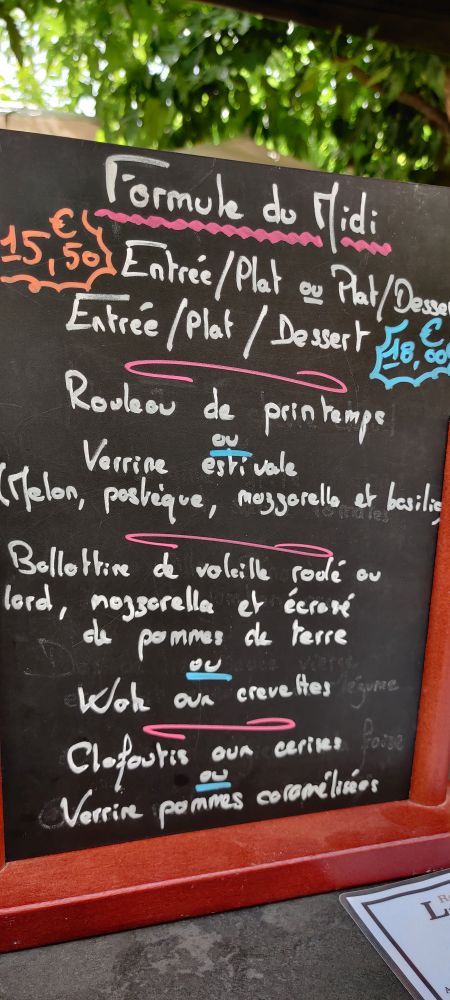 Formule du Midi
15,50 €
Entrée/Plat ou Plat/Desser
Entrée/Plat/Dessert
18,00€
Rouleau de printemps
ou
Verrine estivale
(Melon, pastèque, mozzarella et basilic
Ballottine de volaille rodé au
lard, mozzarella et écrasé
de pommes de terre
ou
Wok aux crevettes
Clafoutis aux cerises
ou
Verrine pommes caramélisées